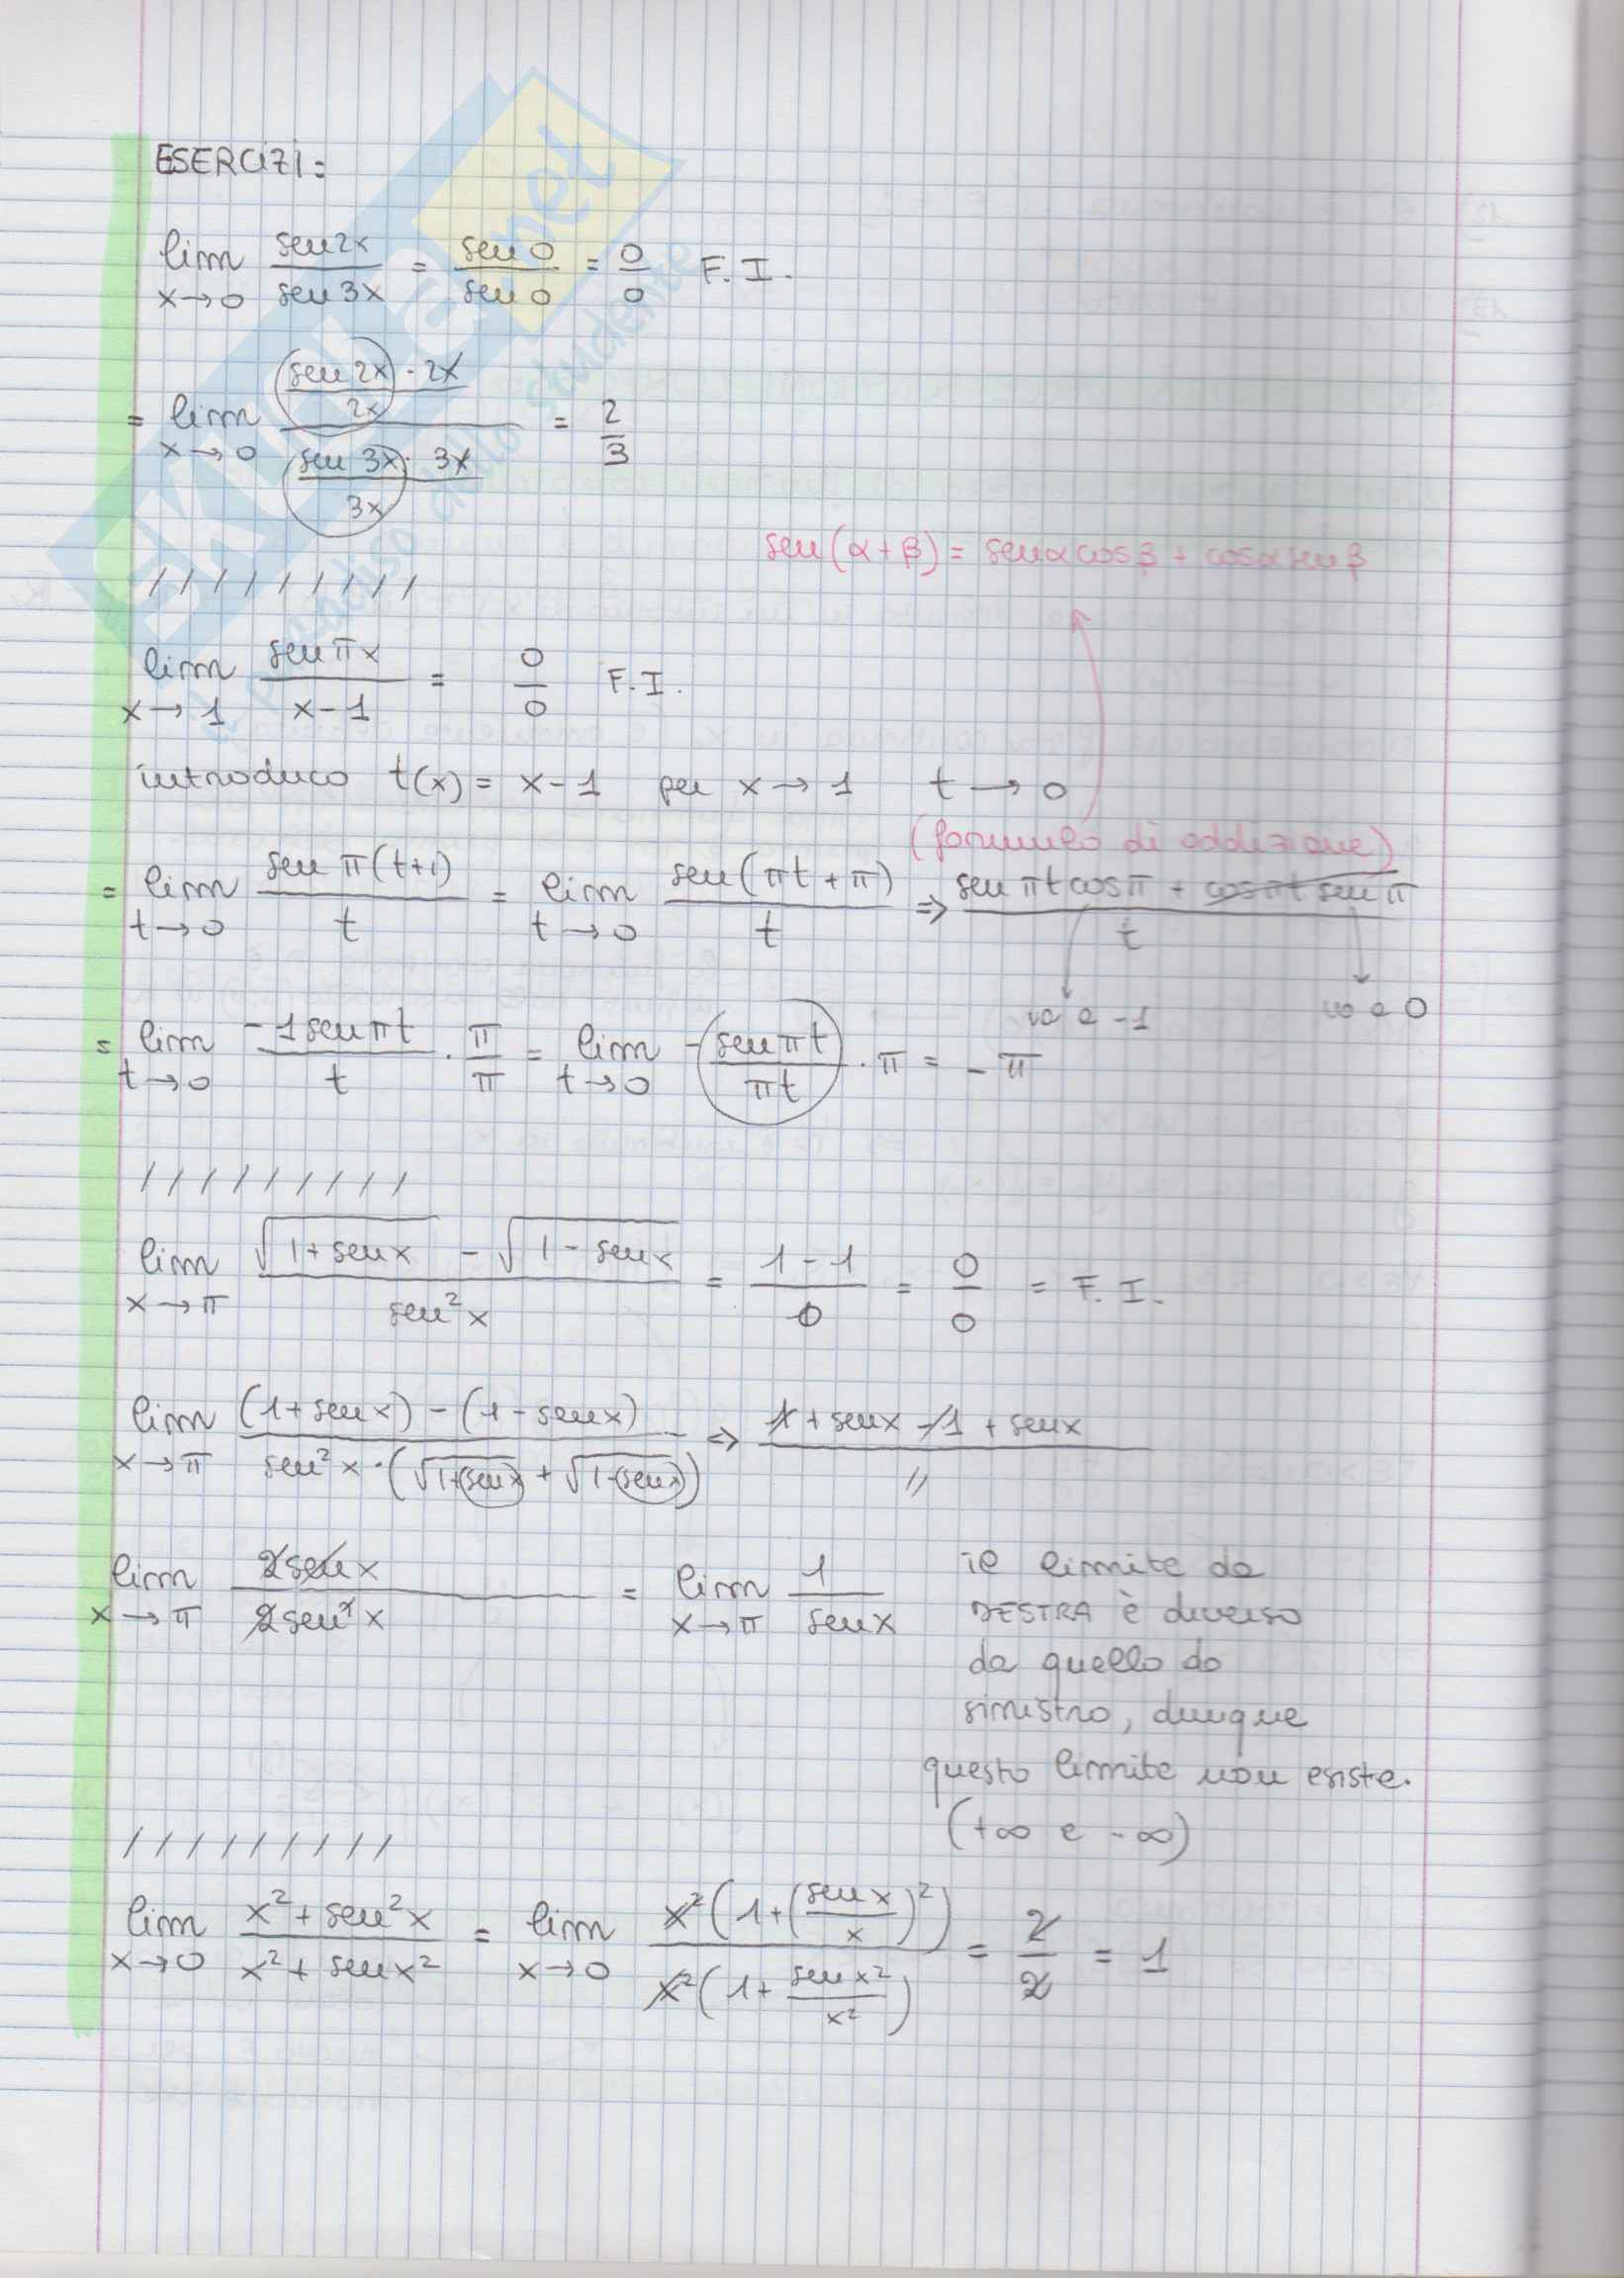 ESERCIZI:
lim x→0 sen2x/sen3x = sen0/sen0 = 0/0 F.I.
= lim x→0 (sen2x/2x · 2x)/(sen3x/3x · 3x) = 2/3
sen(α+β) = senαcosβ + cosαsenβ
/ / / / / / / / /
lim x→1 senπx/x-1 = 0/0 F.I.
introduco t(x) = x-1 per x→1 t→0
(formula di addizione)
= lim t→0 senπ(t+1)/t = lim t→0 sen(πt+π)/t ⇒ senπt cosπ + cosπt senπ/t
va a -1 va a 0
= lim t→0 -1senπt/t · π/π = lim t→0 -senπt/πt · π = -π
/ / / / / / / / /
lim x→π √1+senx - √1-senx/sen²x = 1-1/0 = 0/0 = F.I.
lim x→π (1+senx)-(1-senx)/sen²x·(√1+senx + √1-senx) ⇒ 1+senx-1+senx/〃
lim x→π 2senx/2sen²x = lim x→π 1/senx
il limite da
DESTRA è diverso
da quello da
sinistro, dunque
questo limite non esiste.
(+∞ e -∞)
/ / / / / / / / /
lim x→0 x²+sen²x/x²+senx² = lim x→0 x²(1+(senx/x)²)/x²(1+senx²/x²) = 2/2 = 1
SKUOLA.net
il paradiso dello studente